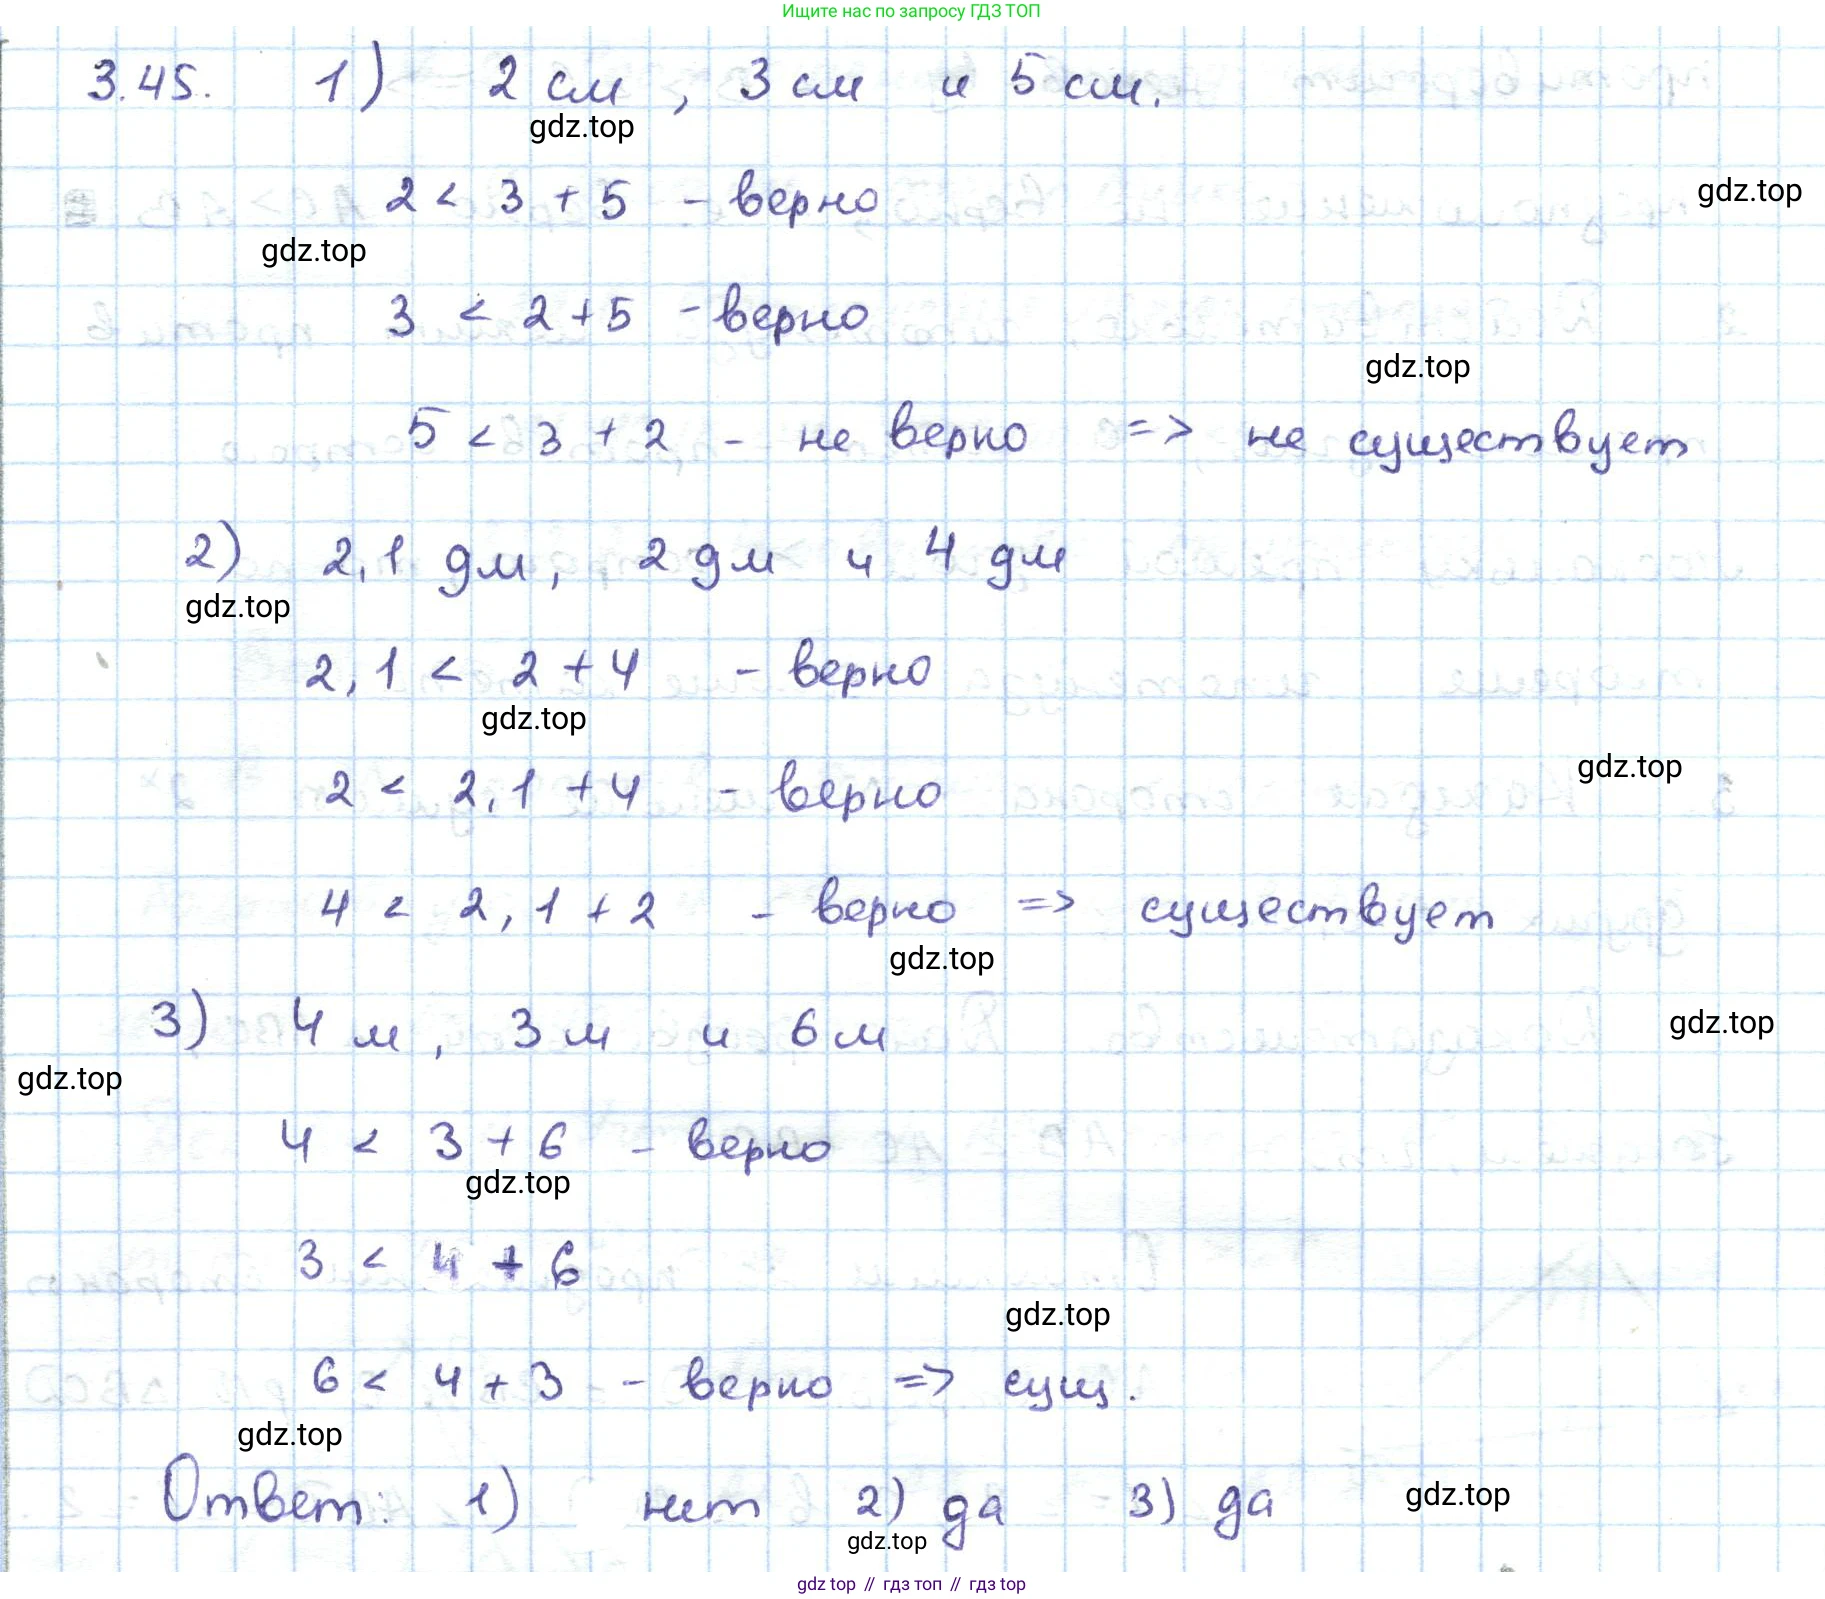 Ищите нас по запросу ГДЗ ТОП
3.45. 1) 2 см, 3 см и 5 см.
gdz.top
2 < 3 + 5 - верно
gdz.top
gdz.top
3 < 2 + 5 - верно
gdz.top
5 < 3 + 2 - не верно => не существует
2) 2,1 дм, 2 дм и 4 дм
gdz.top
2,1 < 2 + 4 - верно
gdz.top
gdz.top
2 < 2,1 + 4 - верно
4 < 2,1 + 2 - верно => существует
gdz.top
3) 4 м, 3 м и 6 м
gdz.top
gdz.top
4 < 3 + 6 - верно
gdz.top
3 < 4 + 6
gdz.top
6 < 4 + 3 - верно => сущ.
gdz.top
Ответ: 1) нет 2) да 3) да
gdz.top
gdz.top
gdz top // гдз топ // gdz top